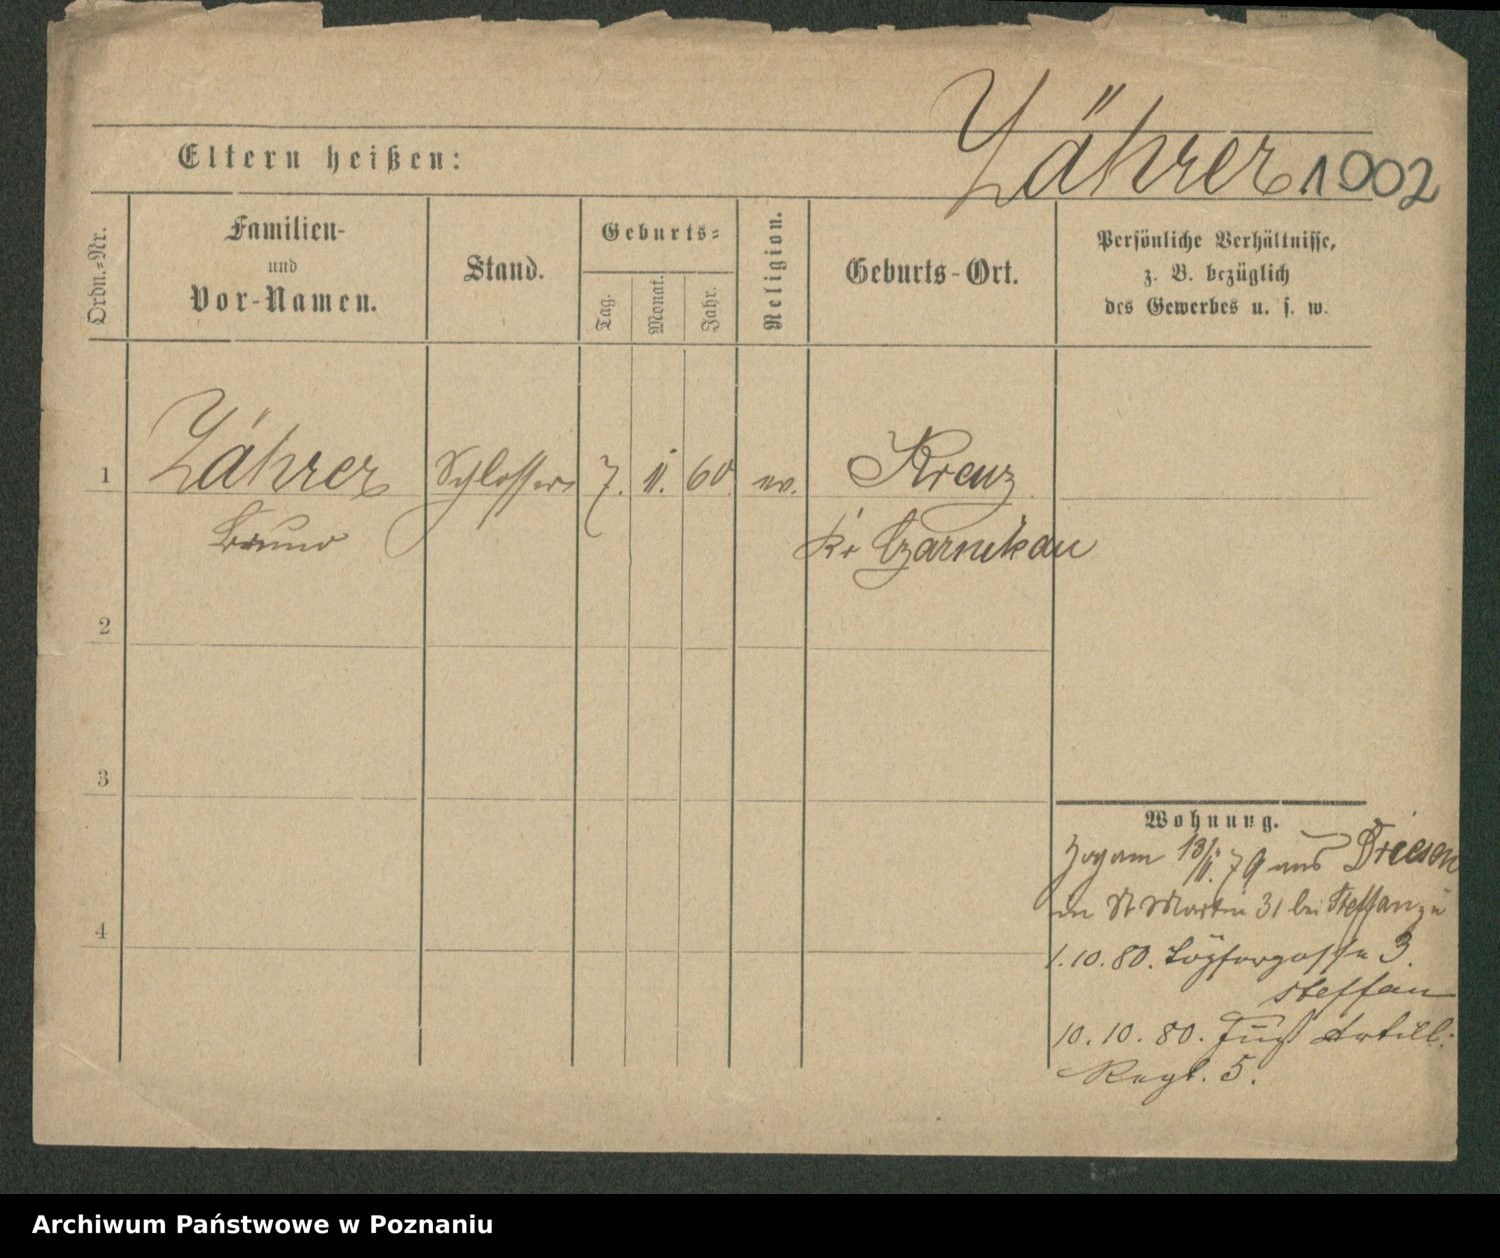 Zährer 1002
Eltern heißen:
Ordn.-Nr.
Familien-
und
Vor-Namen.
Stand.
Geburts-
Tag.
Monat.
Jahr.
Religion.
Geburts-Ort.
Persönliche Verhältnisse,
z. B. bezüglich
des Gewerbes u. s. w.
1 Zährer Schlosser 7. 11. 60. ev. Kreuz
Bruno Kr Czarnikau
2
3
4
Wohnung.
Zog am 13/11. 79 aus Driesen
in St Martin 31 bei Steffan zu
1.10.80. Töpfergasse 3.
Steffan
10.10.80. Fuß Artill:
Regt. 5.
Archiwum Państwowe w Poznaniu